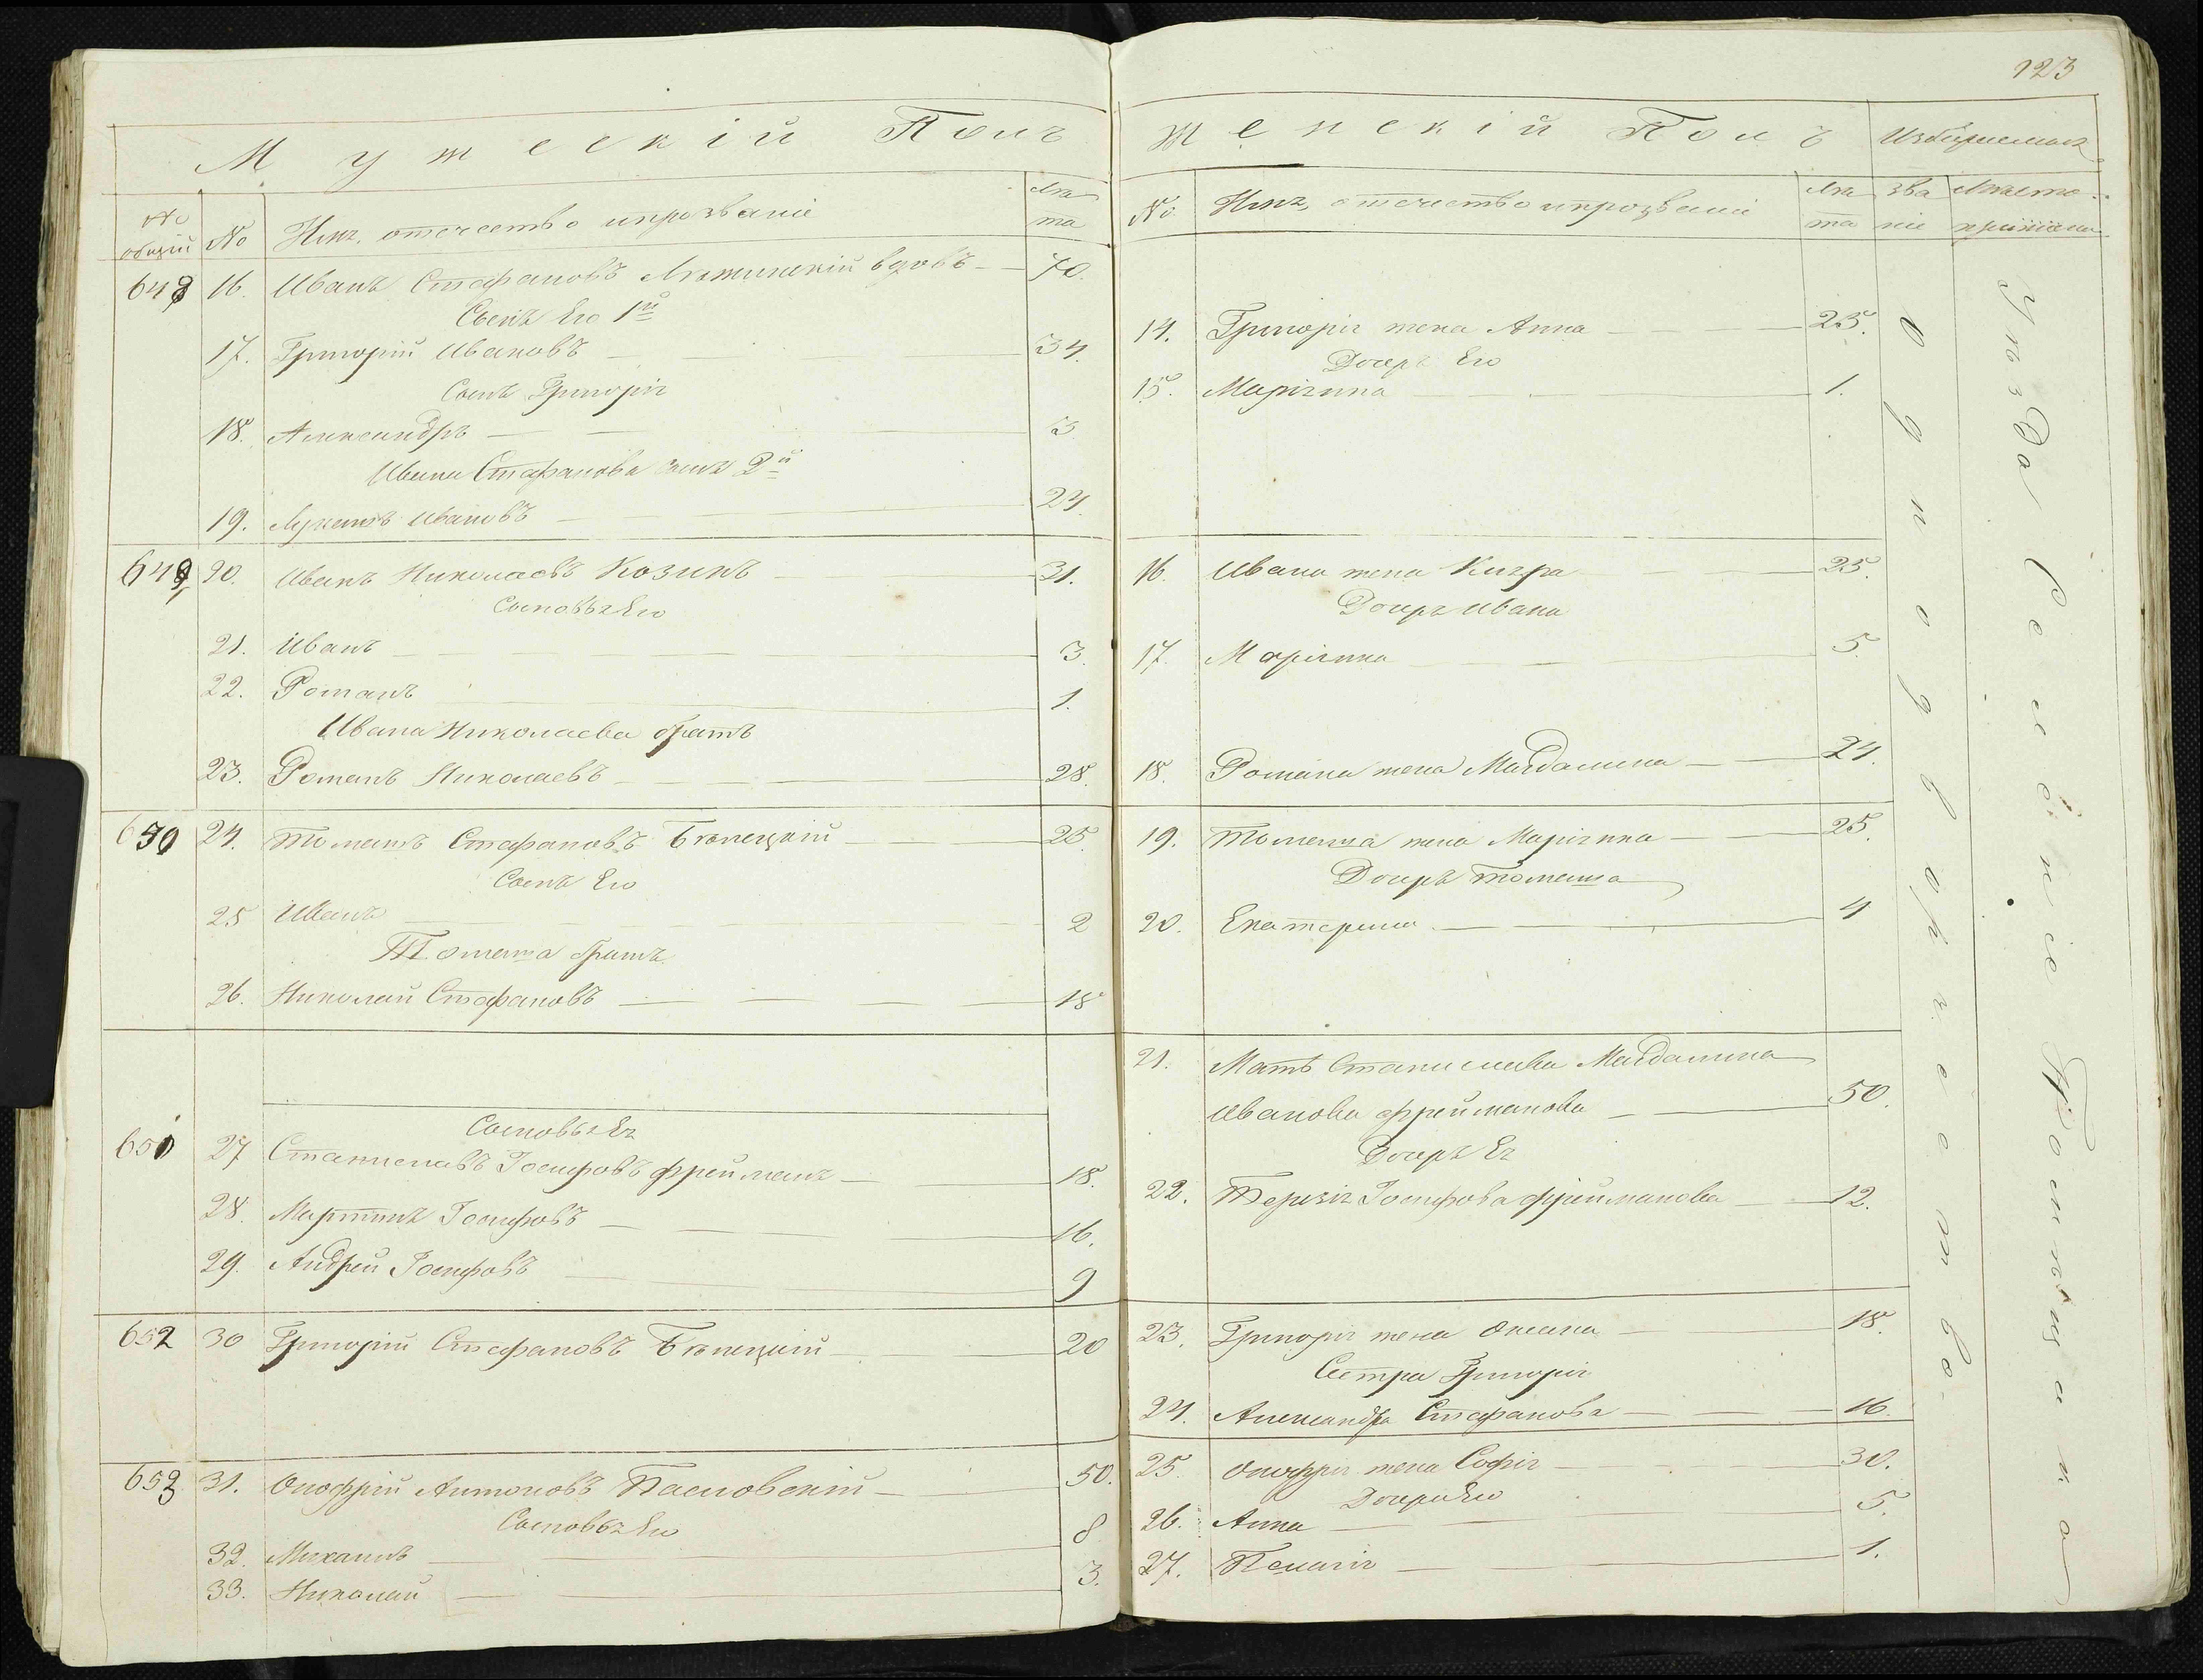 123
Мужескій Полъ
№ общій
№
Имя, отечество и прозваніе
Лѣта
648 16. Иванъ Стефановъ вдовъ 70.
Сынъ Его 1й
17. Григорій Ивановъ 34.
Сынъ Григорія
18. Александръ 3
Ивана Стефанова сынъ 2й
19. Лукашъ Ивановъ 24.
649 20. Иванъ Николаевъ Козикъ 31.
Сыновья Его
21. Иванъ 3.
22. Романъ 1.
Ивана Николаева братъ
23. Романъ Николаевъ 28.
650 24. Томашъ Стефановъ Бѣлецкій 25.
Сынъ Его
25 Иванъ 2
Томаша братъ
26. Николай Стефановъ 18
Сыновья Ея
651 27 Станиславъ Іосифовъ Фрейманъ 18.
28. Мартинъ Іосифовъ 16.
29. Андрей Іосифовъ 9
652 30 Григорій Стефановъ Бѣлецкій 20
653 31. Онофрій Антоновъ Пасловскій 50.
Сыновья Его 8
32. Михаилъ
33. Николай 3.
Женскій Полъ
№
Имя, отечество и прозваніе
Лѣта
Званіе
14. Григорія жена Анна 25.
Дочерь Его
15. Маріянна 1.
16. Ивана жена Кигра 25.
Дочерь Ивана
17. Маріянна 5.
18. Романа жена Магдалина 24.
19. Томаша жена Маріянна 25.
Дочерь Томаша
20. Екатерина 4
21. Мать Станислава Магдалина
Иванова Фрейманова 50.
Дочерь Ея
22. Терезія Іосифова Фрейманова 12.
23. Григорія жена Оксана 18.
Сестра Григорія
24. Александра Стефанова 16.
25. Онофрія жена Софія 30.
Дочери Его
26. Анна 5.
27. Пелагія 1.
Однодворческое
Уѣзда